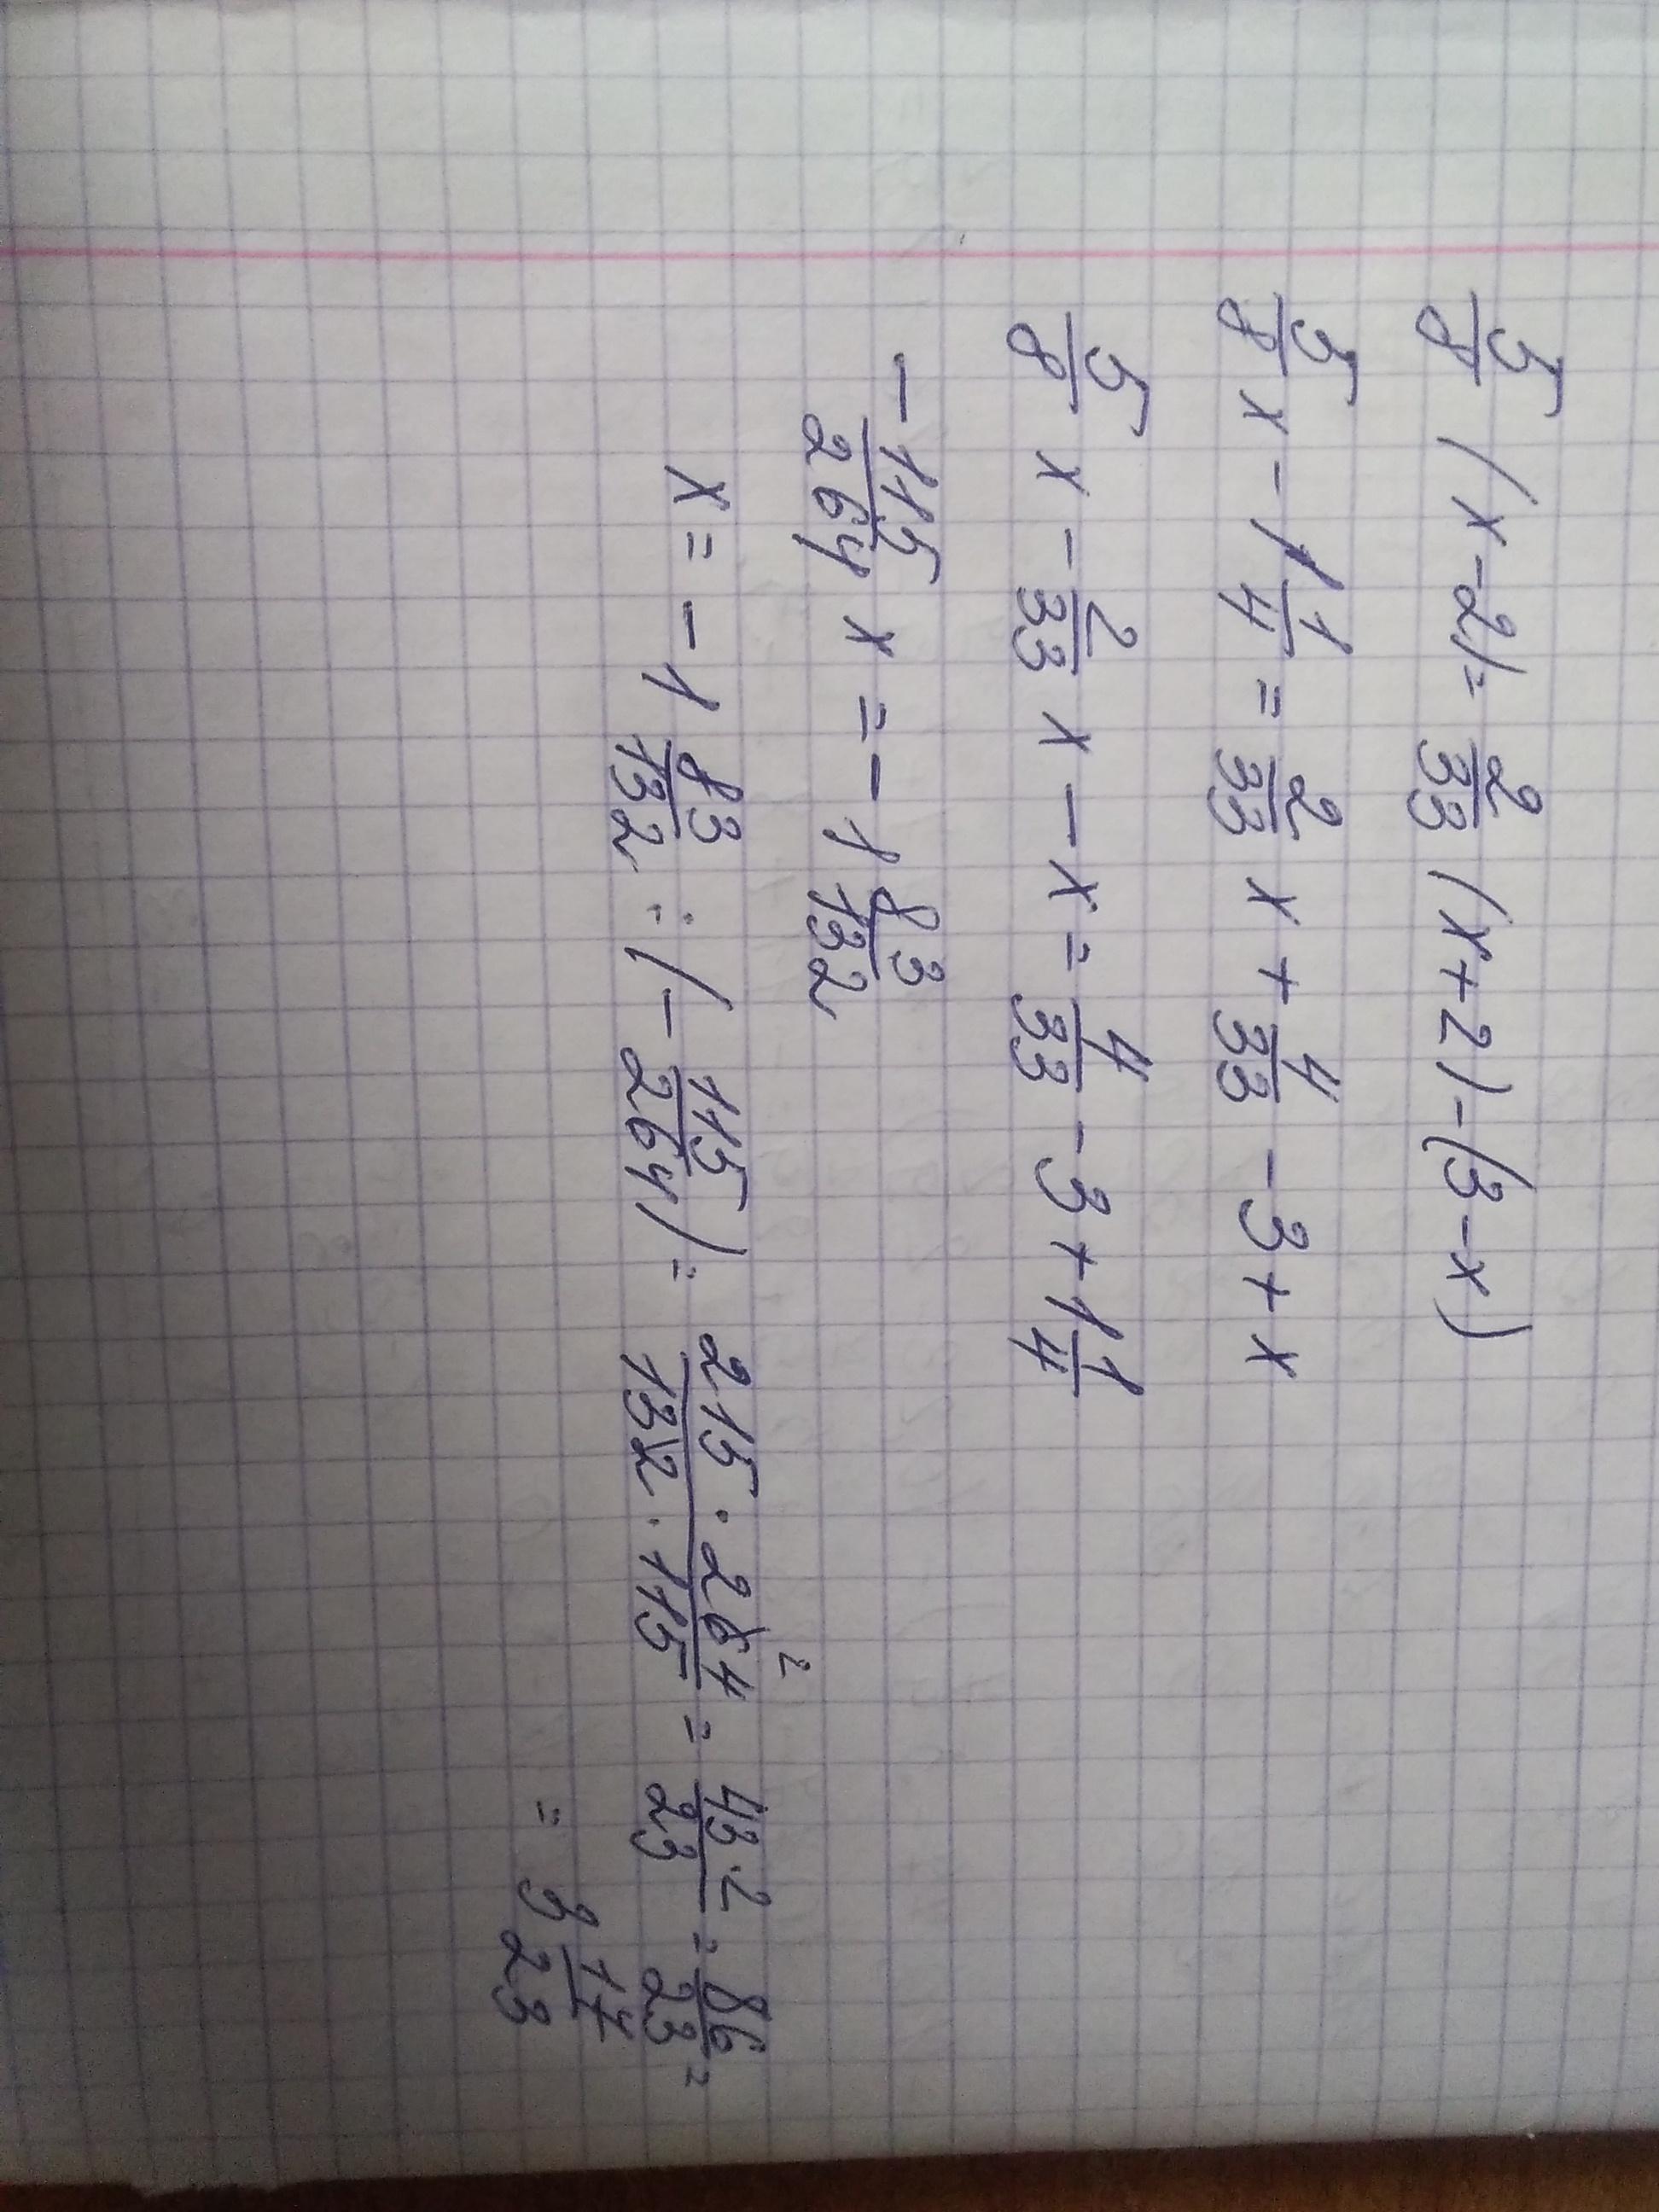 5/8 (x-2)= 2/33 (x+2)-(3-x)
5/8 x - 1 1/4 = 2/33 x + 4/33 - 3 + x
5/8 x - 2/33 x - x = 4/33 - 3 + 1 1/4
- 115/264 x = - 1 83/132
x = - 1 83/132 : (- 115/264) = 215 · 264 ²/132 · 115 = 43·2/23 = 86/23 =
= 3 17/23